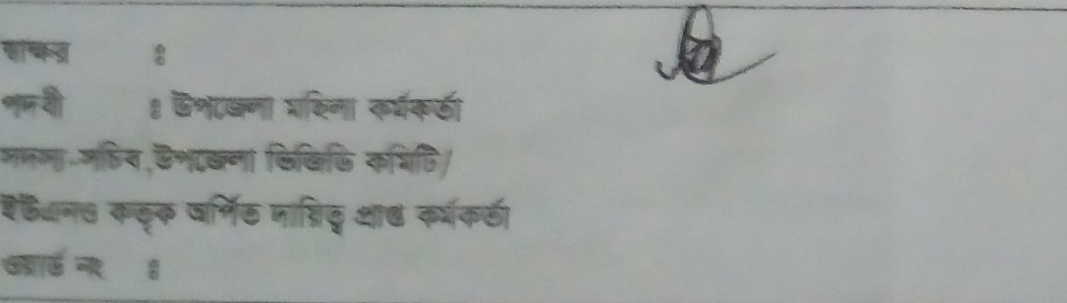 স্বাক্ষর :
পদবী : উপজেলা মহিলা কর্মকর্তা
সদস্য-সচিব, উপজেলা ভিজিডি কমিটি/
ইউএনও কতৃক অর্পিত দায়িত্ব প্রাপ্ত কর্মকর্তা
ওয়ার্ড নং :